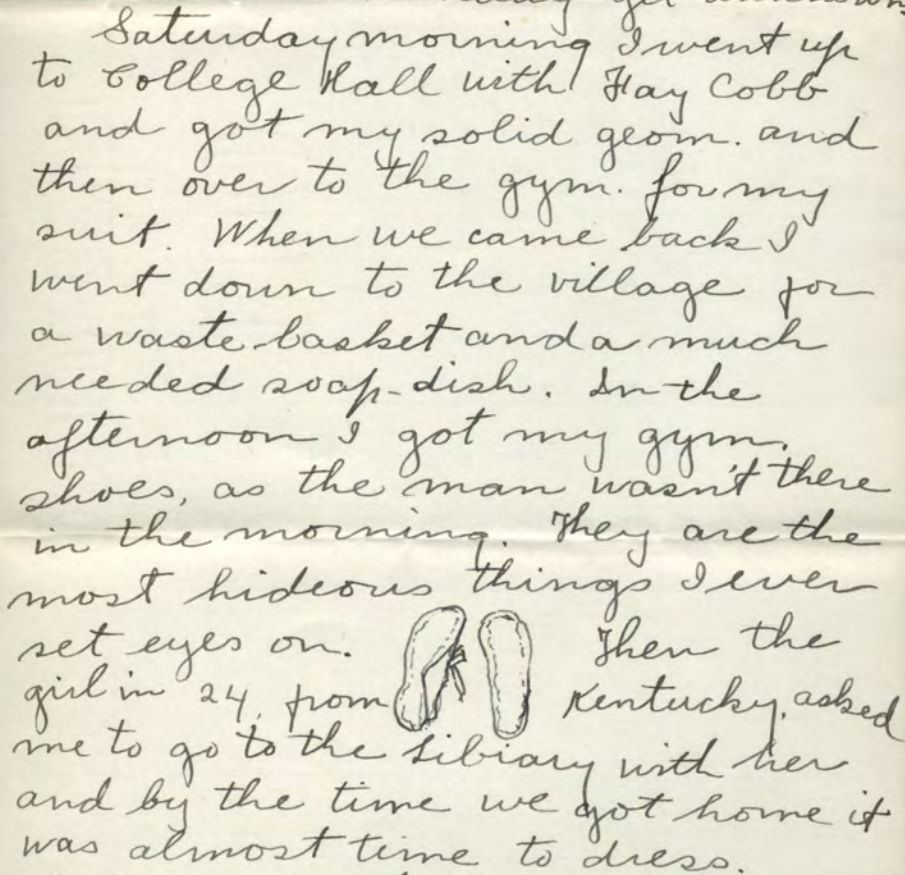 get
Saturday morning I went up
to College Hall with Fay Cobb
and got my solid geom. and
then over to the gym. for my
suit. When we came back I
went down to the village for
a waste-basket and a much
needed soap-dish. In the
afternoon I got my gym.
shoes, as the man wasn't there
in the morning. They are the
most hideous things I ever
set eyes on. Then the
girl in 24, from Kentucky, asked
me to go to the Library with her
and by the time we got home it
was almost time to dress.